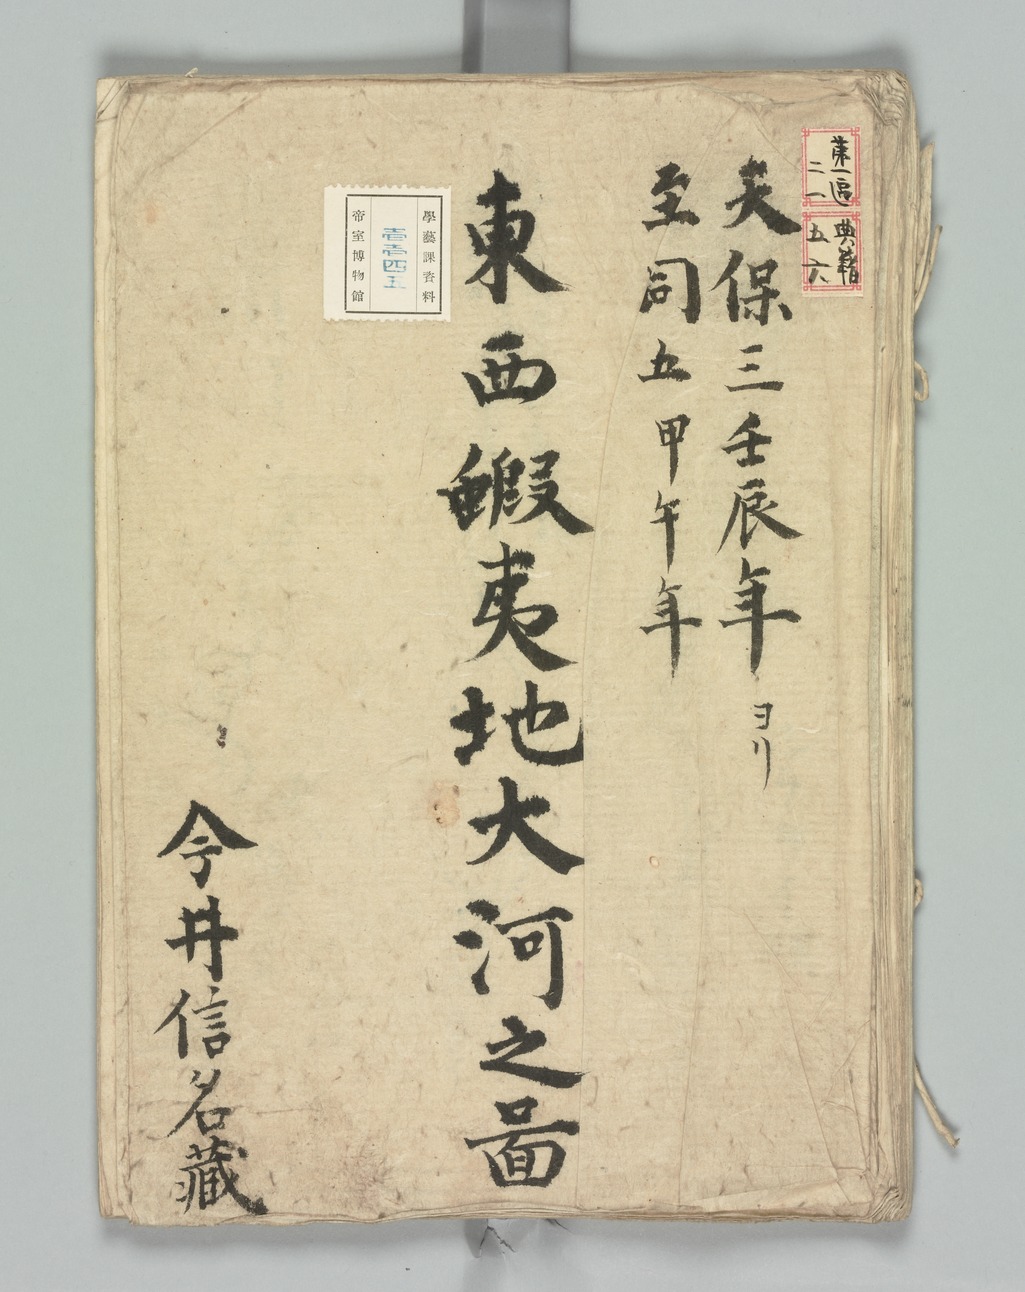 第一區
二一
典籍
五六
天保三壬辰年ヨリ
至同五甲午年
東西蝦夷地大河之圖
學藝課資料
壹壹四五
帝室博物館
今井信名藏